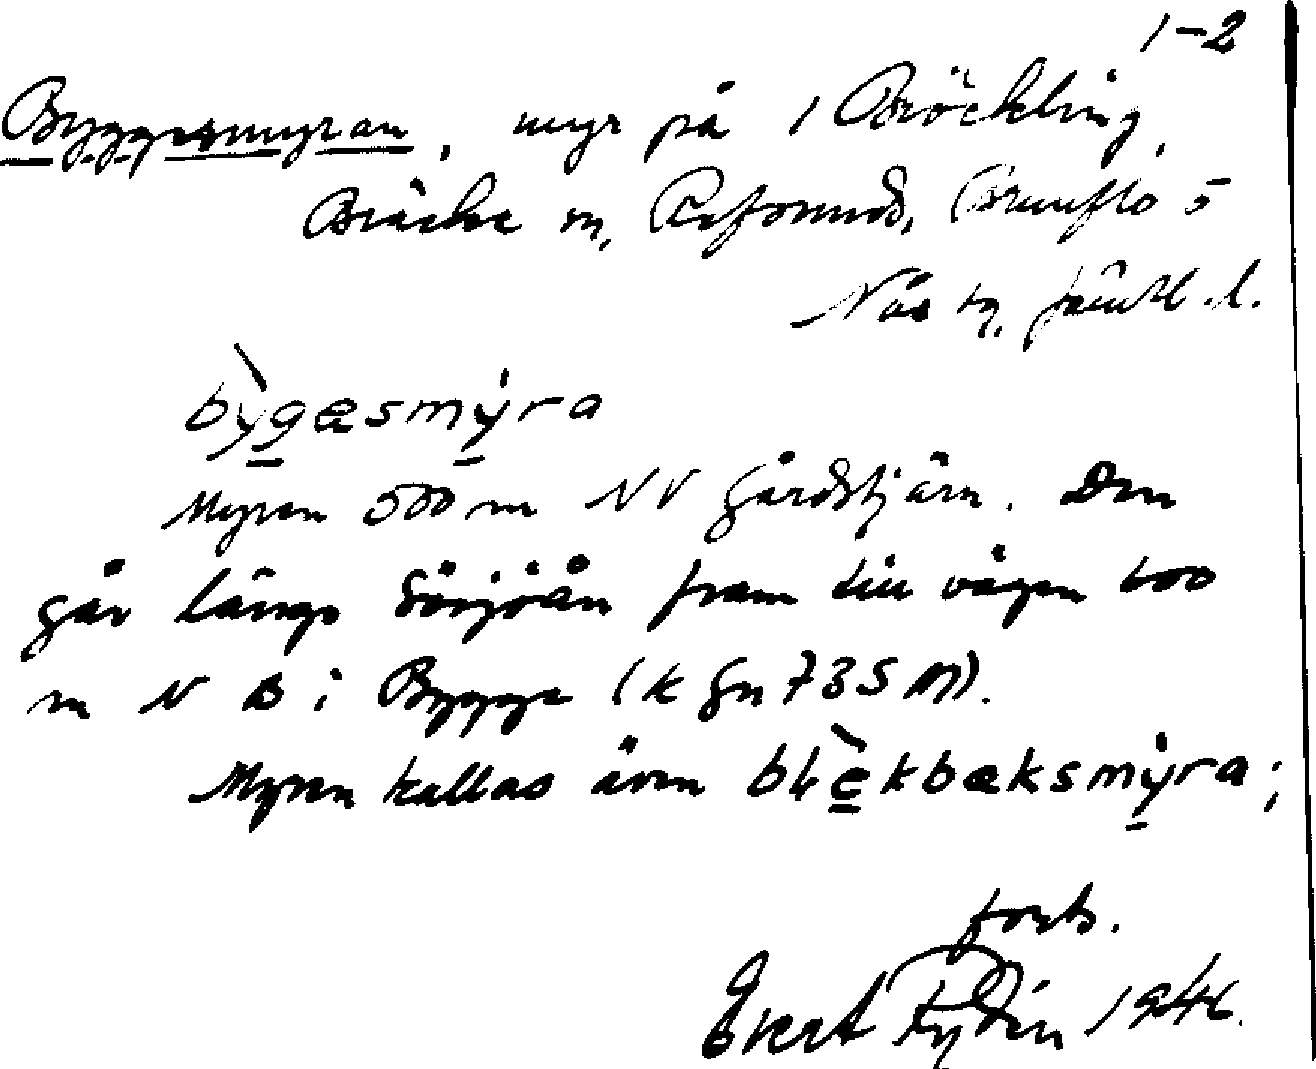 1-2
Byggesmyran, myr på 1 Bröckling,
Bräcke sn, Refsunds, Brunflo o
Näs tg. Jämtl. l.
bỳgæsmýra
Myren 500 m NV Gårdstjärn. Den
går längs Sörjöån fram till vägen 600
m N B i Bygge (k gn 735 M).
Myren kallas även blèkbæksmýra;
forts.
Evert Rydin 1946.